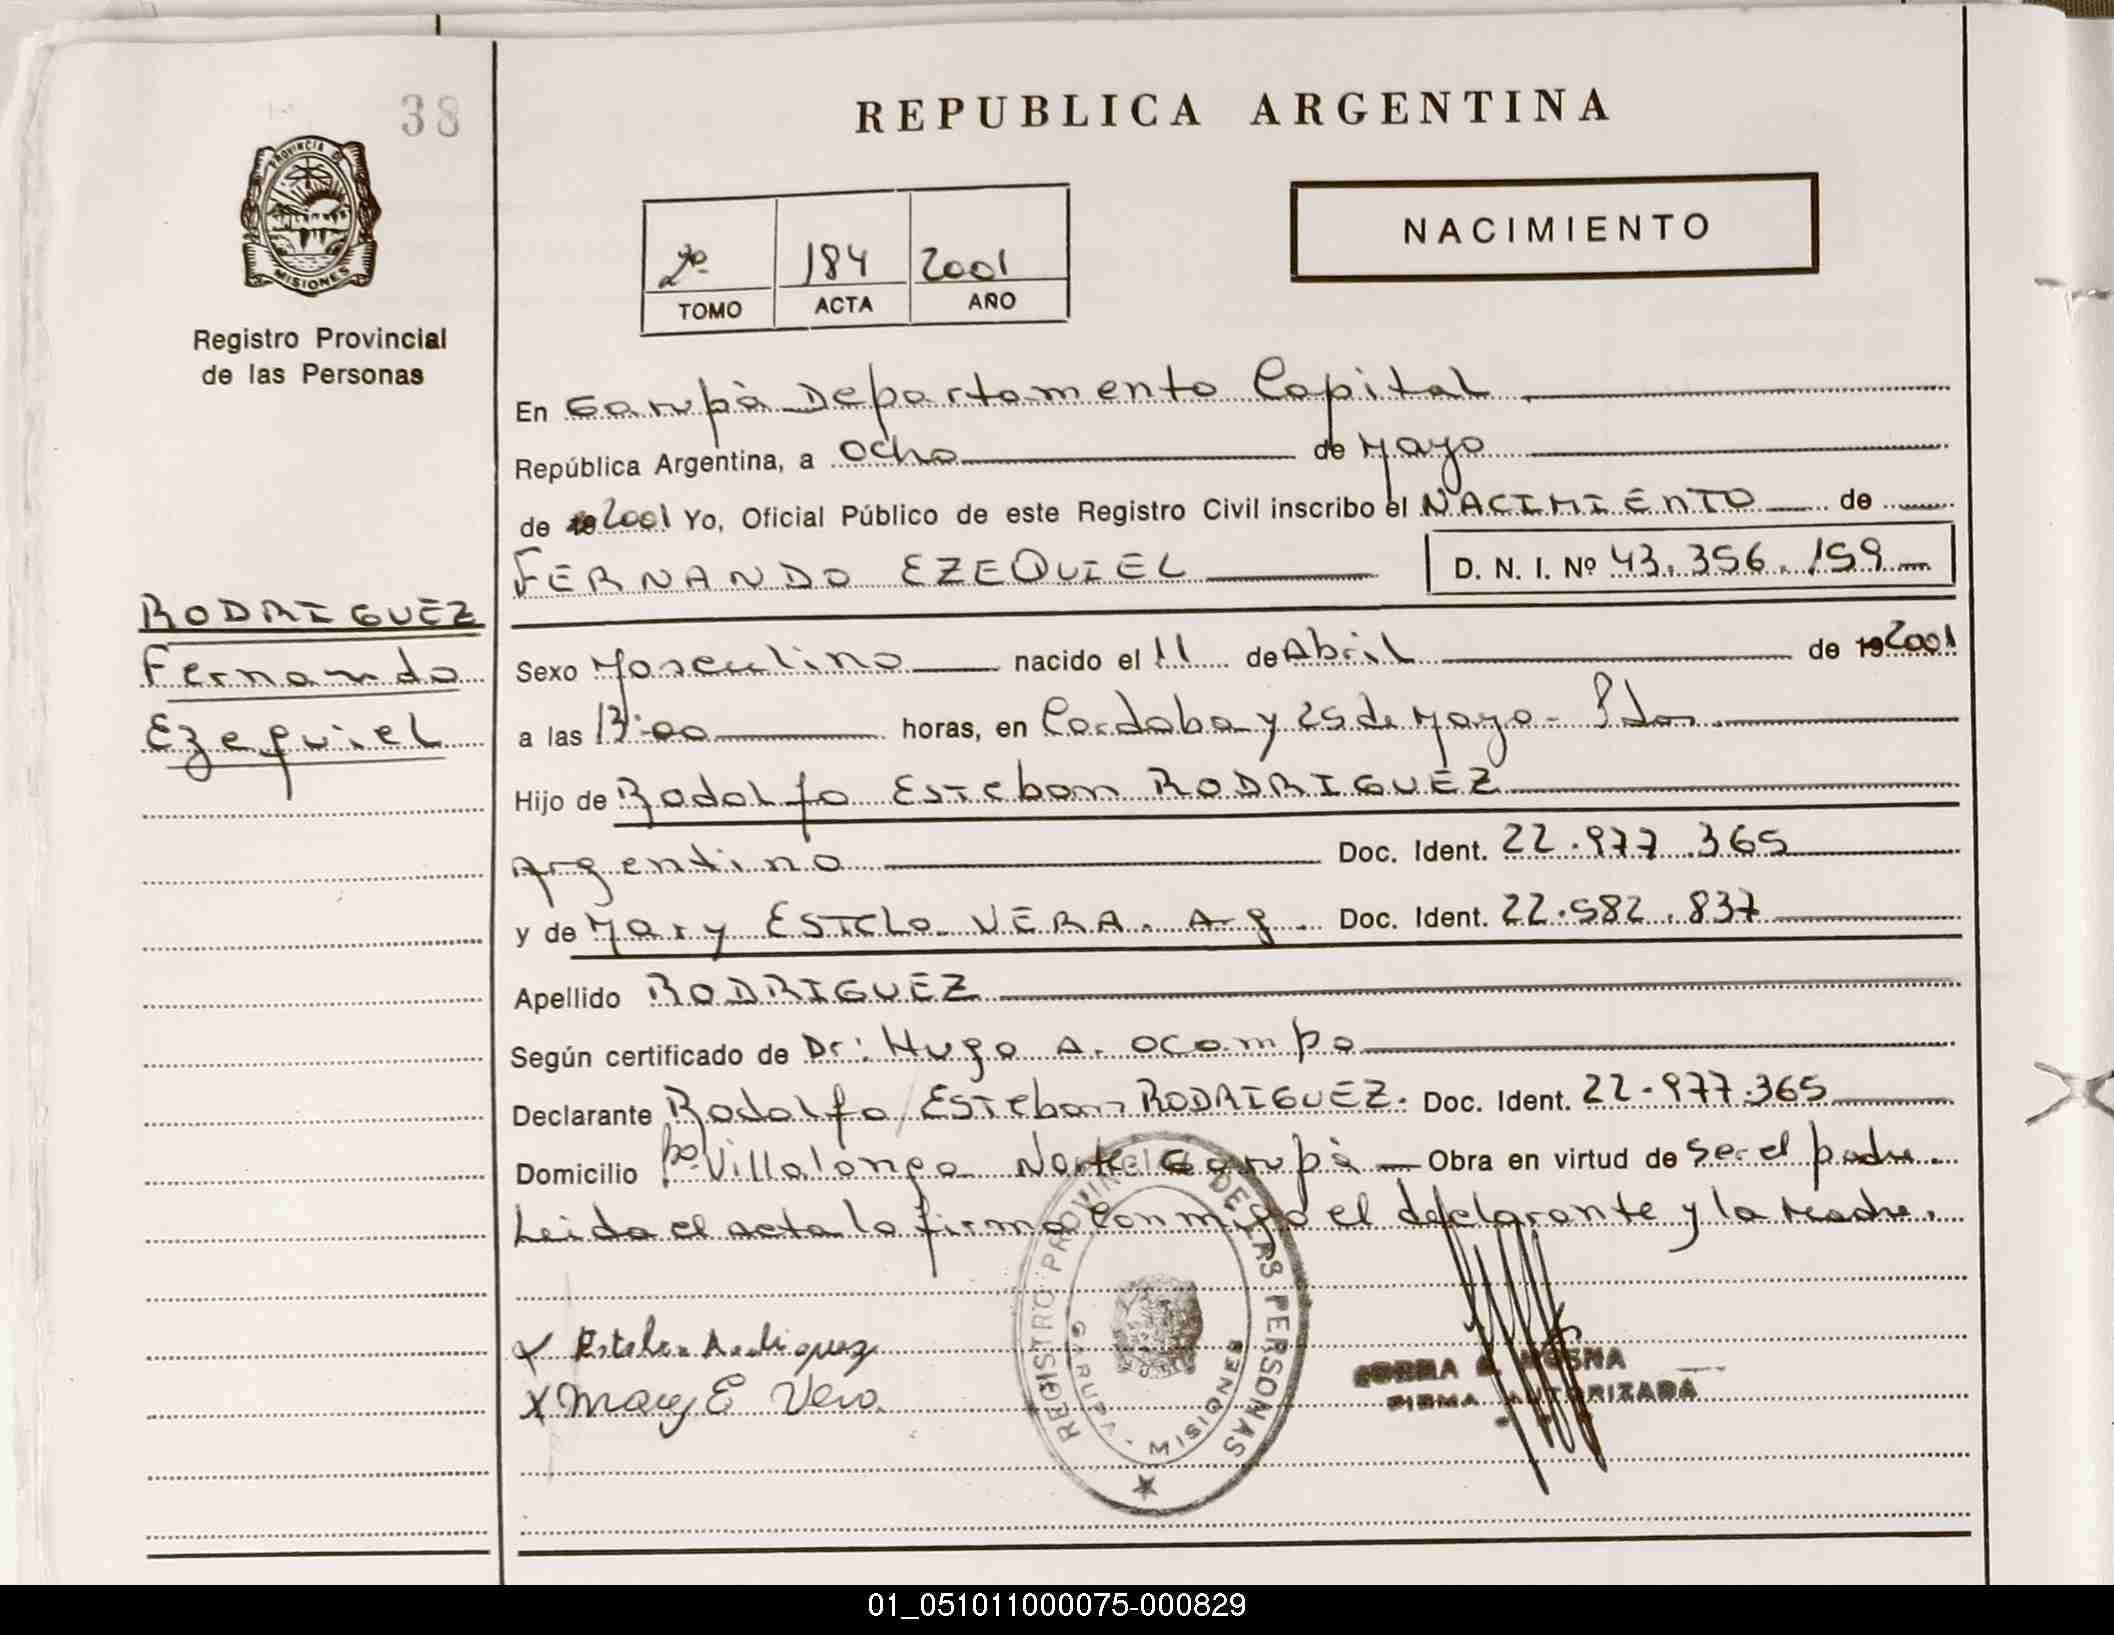 38
REPUBLICA ARGENTINA
PROVINCIA DE
MISIONES
Registro Provincial
de las Personas
2º 184 2001
TOMO ACTA AÑO
NACIMIENTO
En Garupà Departamento Capital
República Argentina, a ocho de Mayo
de 19 2001 Yo, Oficial Público de este Registro Civil inscribo el NACIMIENTO de
FERNANDO EZEQUIEL D. N. I. Nº 43.356.159
RODRIGUEZ
Fernando
Ezequiel
Sexo Masculino nacido el 11 de Abril de 19 2001
a las 13:00 horas, en Cordoba y 25 de Mayo - Pdas.
Hijo de Rodolfo Esteban RODRIGUEZ
Argentino Doc. Ident. 22.977.365
y de Mary Estela VERA. Arg. Doc. Ident. 22.582.837
Apellido RODRIGUEZ
Según certificado de Dr: Hugo A. Ocampo
Declarante Rodolfo Esteban RODRIGUEZ. Doc. Ident. 22.977.365
Domicilio Bº Villalonga Norte Garupà Obra en virtud de ser el padre.
Leida el acta la firma conmigo el declarante y la Madre.
REGISTRO PROVINCIAL DE LAS PERSONAS
GARUPA - MISIONES
x Esteban Rodriguez
x Mary E Vera.
FIRMA AUTORIZADA
01_051011000075-000829